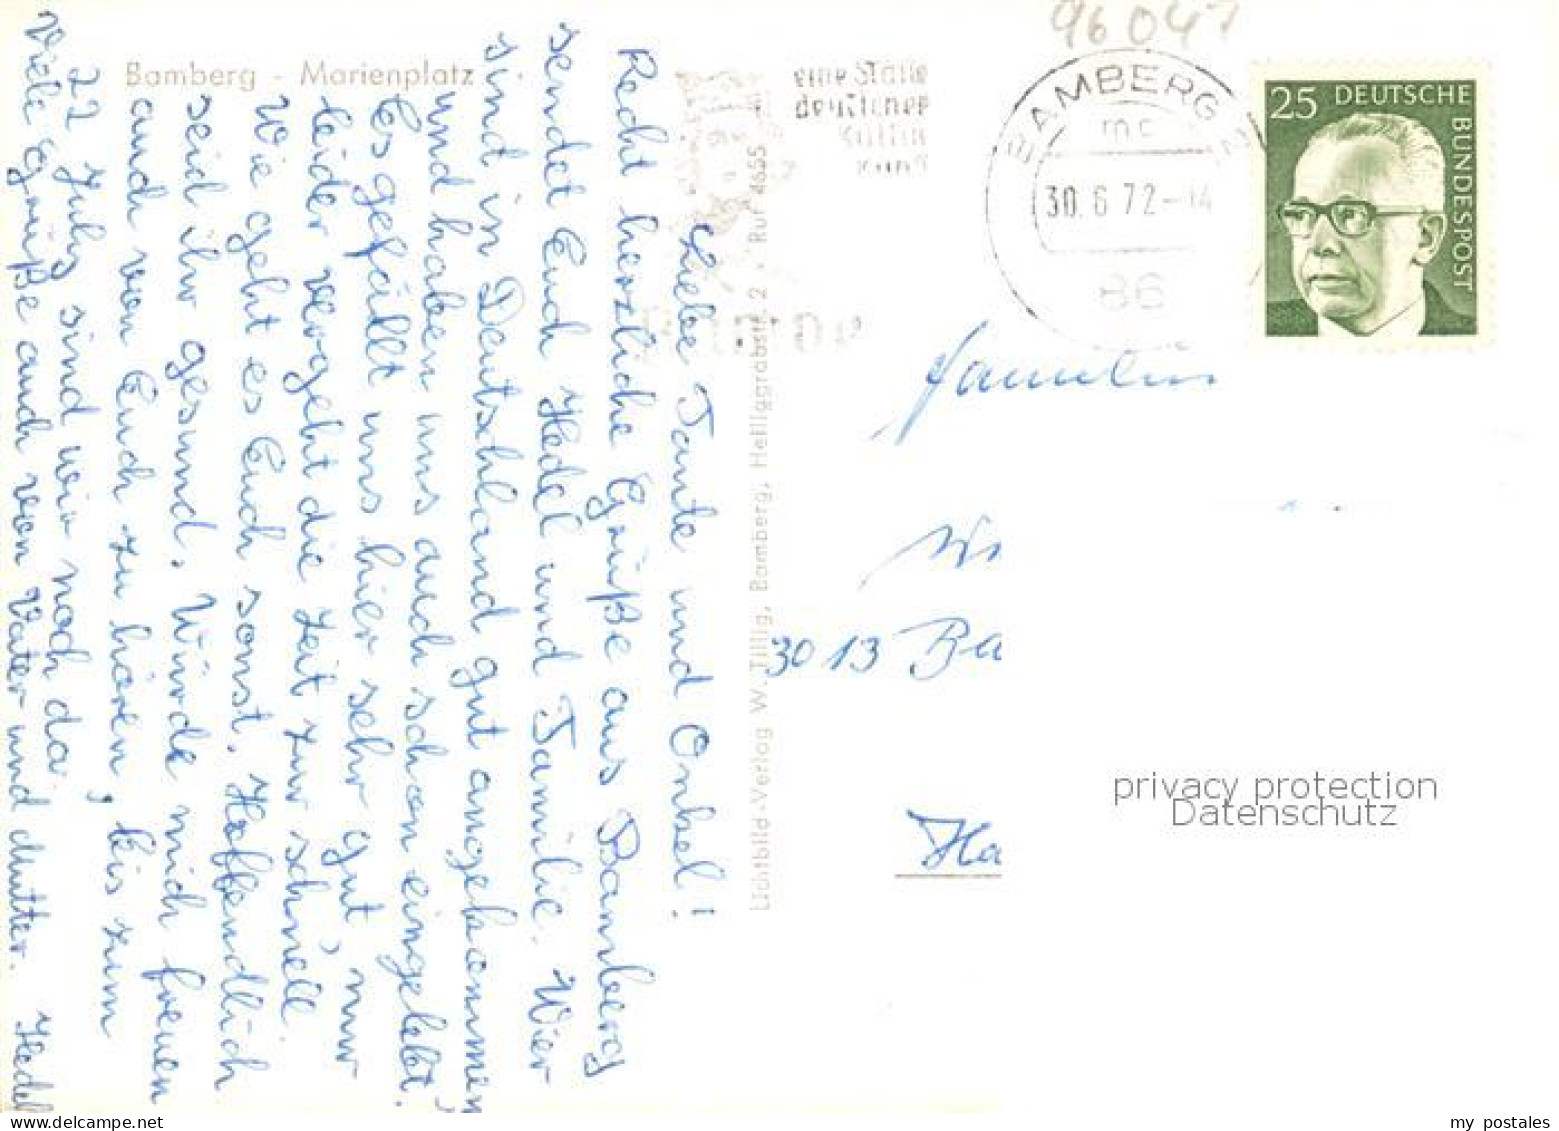 96047
Bamberg - Marienplatz
Liebe Tante und Onkel!
Recht herzliche Grüße aus Bamberg
sendet Euch Hedel und Familie. Wier
sind in Deutschland gut angekommen
und haben uns auch schon eingelebt.
Es gefällt uns hier sehr gut, nur
leider vergeht die Zeit zur schnell.
Wie geht es Euch sonst. Hoffendlich
seid ihr gesund. Würde mich freuen
auch von Euch zu hören, bis zum
22 July sind wir noch da.
Viele Grüße auch von Vater und Mutter. Hedel
Lichtbild-Verlog W. Tillig, Bamberg, Heiliggrabstr. 2 · Ruf 4655
eine Stätte
deutscher
Kultur
Kunst
BAMBERG
mc
30.6.72-14
86
25 DEUTSCHE
BUNDESPOST
Familie
3013 Ba
Ha
privacy protection
Datenschutz
my postales